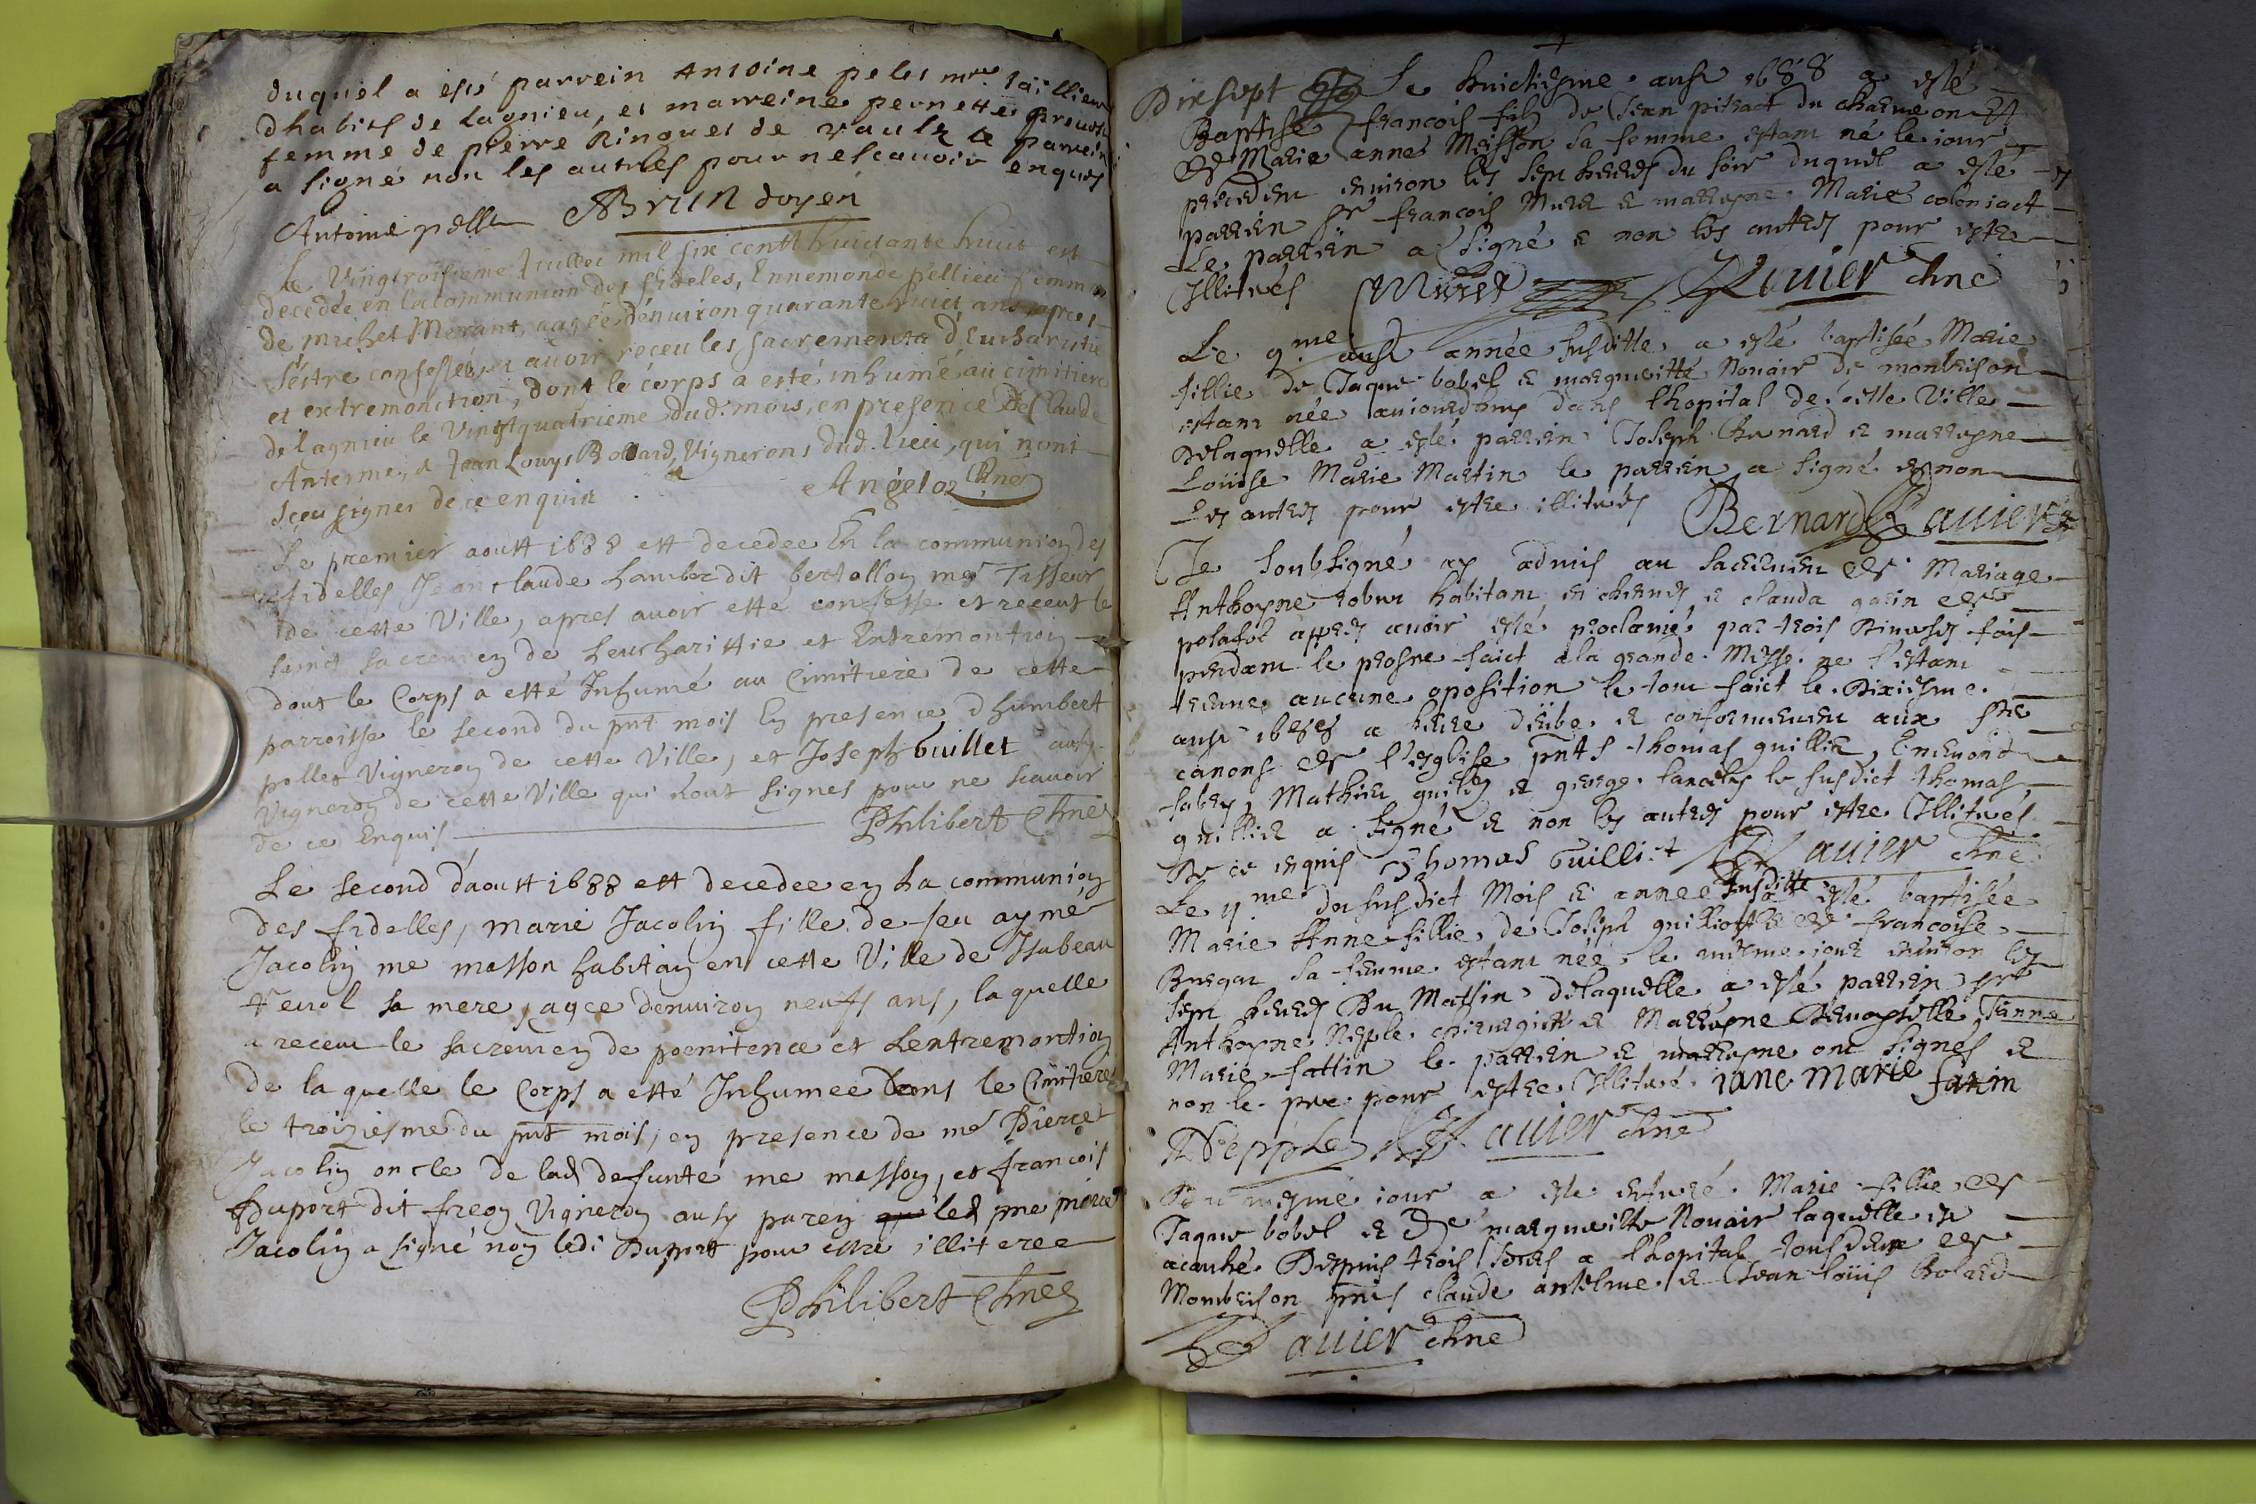 duquel a esté parrein Antoine peles mre taillieur
dhabits de lagnieu, et marreine pernette
femme de pierre Ringuet de vaulx le parrein
a signé non les autres pour ne scavoir enquis
Antoine pelle Brun doyen
Le Vingtroisieme Juillet mil six centt huictante huict est
decedée en la communion des fideles, Ennemonde pellieu femme
de michel Morant, aagée d'enuiron quarante huict ans, apres
s'éstre confessée, et auoir receu les sacrements d'Eucharistie
et extremonction, dont le corps a esté inhumé au cimitiere
de lagnieu le Vingtquatrieme dud. mois, en presence de Claude
Anterme, & Jean Louys Bollard, Vignerons dud. lieu, qui n'ont
sceu signer de ce enquis Angeloz Chne
Le premier aoustt 1688 est decedee En la communion des
fidelles Jean claude hambert dit bertollon me Tisseur
de cette Ville, apres auoir estté confesse et receut le
sainct sacremen de Leucharittie et Extremontion
dont le Corps a estté Inhumé au Cimitiere de cette
parroisse le second du pnt mois En presence dhumbert
pollet Vigneron de cette Ville, et Joseph Guillet ausy
Vigneron de cette Ville qui n'ont signes pour ne scauoir
de ce Enquis Philibert Chne
Le second d'aoustt 1688 est decedee en La communion
des fidelles, marie Jacolin fille de feu aymé
Jacolin me masson habitan en cette Ville de Isabeau
teuol sa mere, agee denuiron neufs ans, laquelle
a receu le sacremen de poenitence et Lentremontion
de la quelle le Corps a estté Inhumee dans le Cimitiere
le troiziesme du pnt mois, en presence de me Pierre
Jacolin oncle de lad defunte me masson, et francois
Duport dit freon Vigneron ausy paren led me pierre
Jacolin a signé non ledi Duport pour esttre illiteree
Philibert Chne
Dixsept Le huictiesme aust 1688 a esté
Baptisé francois filz de Jean pitract du charveon et
de Marie anne Meisson sa femme estant né le iour
precedent enuiron les sept heures du soir duquel a esté
parrein sr francois Muret et marreyne Marie coloniact
Le parrein a signé et non les autres pour estre
Illitrés Muret Rauier chne
Le 9me aust année susditte a esté baptisée Marie
fillie de Jaque bobel et margueritte Nouair de monbrison
estant née auiourdhuy dans lhopital de cette Ville
Delaquelle a esté parrein Joseph Bernard et marreyne
Loüise Marie Martin le parrein a signé et non
Les autres pour estre illitrés Bernard Rauier
Je soubsigné ay admis au sacrement de Mariage
Anthoyne robin habitant en chernes et clauda garin de
polafol appres auoir esté proclamé par trois diuerses fois
pendant le prosne faict a la grande Messe ne s'estant
treuué aucune oposition le tout faict le dixiesme
aust 1688 a heure deübe et conformement aux sts
canons de l'esglise pnts thomas guillier, Enemond
fabry, Mathieu guiliez et george lancelos le susdict thomas
guillier a signé et non les autres pour estre Illitrés
De ce enquis Thomas Guilliet Rauier chne
Le 11me du susdict Mois et annee susditte a esté baptisée
Marie Anne fillie de Joseph guilliot et de francoise
Burgat sa femme estant née le mesme iour enuiron les
sept heures du Mattin delaquelle a esté parrein sr
Anthoyne Nepple chirurgien et Marreyne Demoyselle Janne
Marie fattin le parrein et marreyne ont signés et
non le pere pour estre Illitré iane marie fatin
Nepple Rauier chne
Du mesme iour a esté enterré Marie fillie de
Jaque bobel et de margueritte Nouair laquelle est
acouché Despuis trois iours a lhopital tous deux de
Monbrison pnts claude antelme et Jean loüis Bolard
Rauier chne